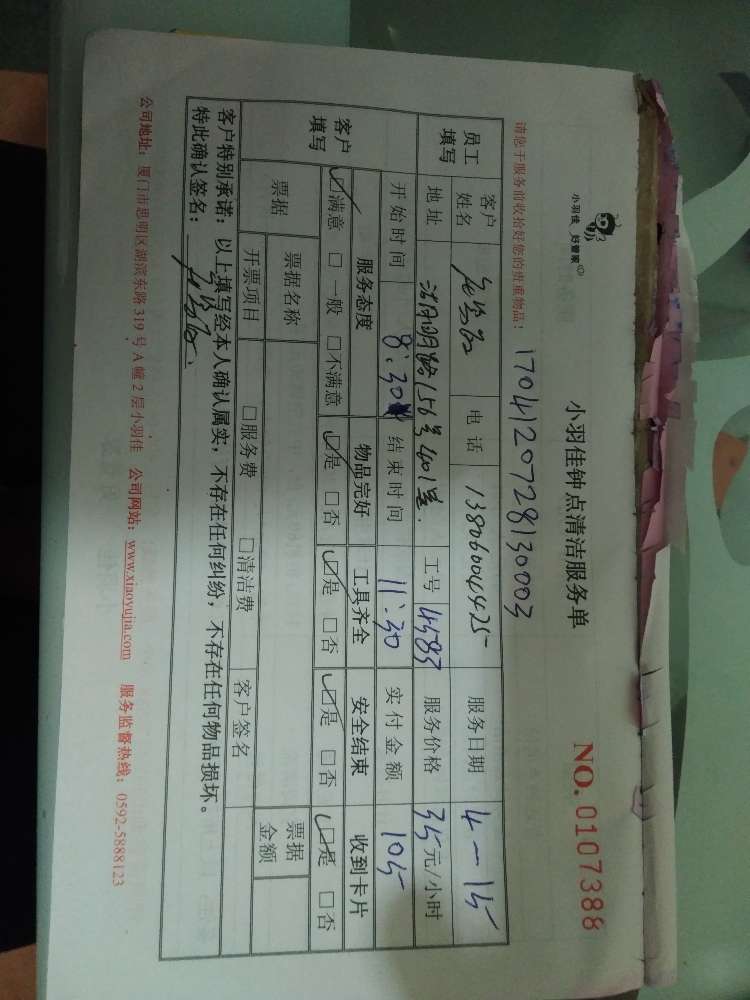 小羽佳 好管家
小羽佳钟点清洁服务单
NO. 0107388
请您于服务前收拾好您的贵重物品!
17041207281300003
员工填写
客户姓名
电话 13806004425
服务日期 4-15
地址
156号401室.
工号 4583
服务价格 35元/小时
开始时间 8:30
结束时间 11:30
实付金额 105
客户填写
服务态度 物品完好 工具齐全 安全结束 收到卡片
☑满意 □一般 □不满意 ☑是 □否 ☑是 □否 ☑是 □否 ☑是 □否
票据
票据名称
票据金额
开票项目 □服务费 □清洁费 客户签名
客户特别承诺:以上填写经本人确认属实,不存在任何纠纷,不存在任何物品损坏。
特此确认签名:
公司地址:厦门市思明区湖滨东路319号A幢2层小羽佳 公司网站:www.xiaoyujia.com 服务监督热线:0592-5888123